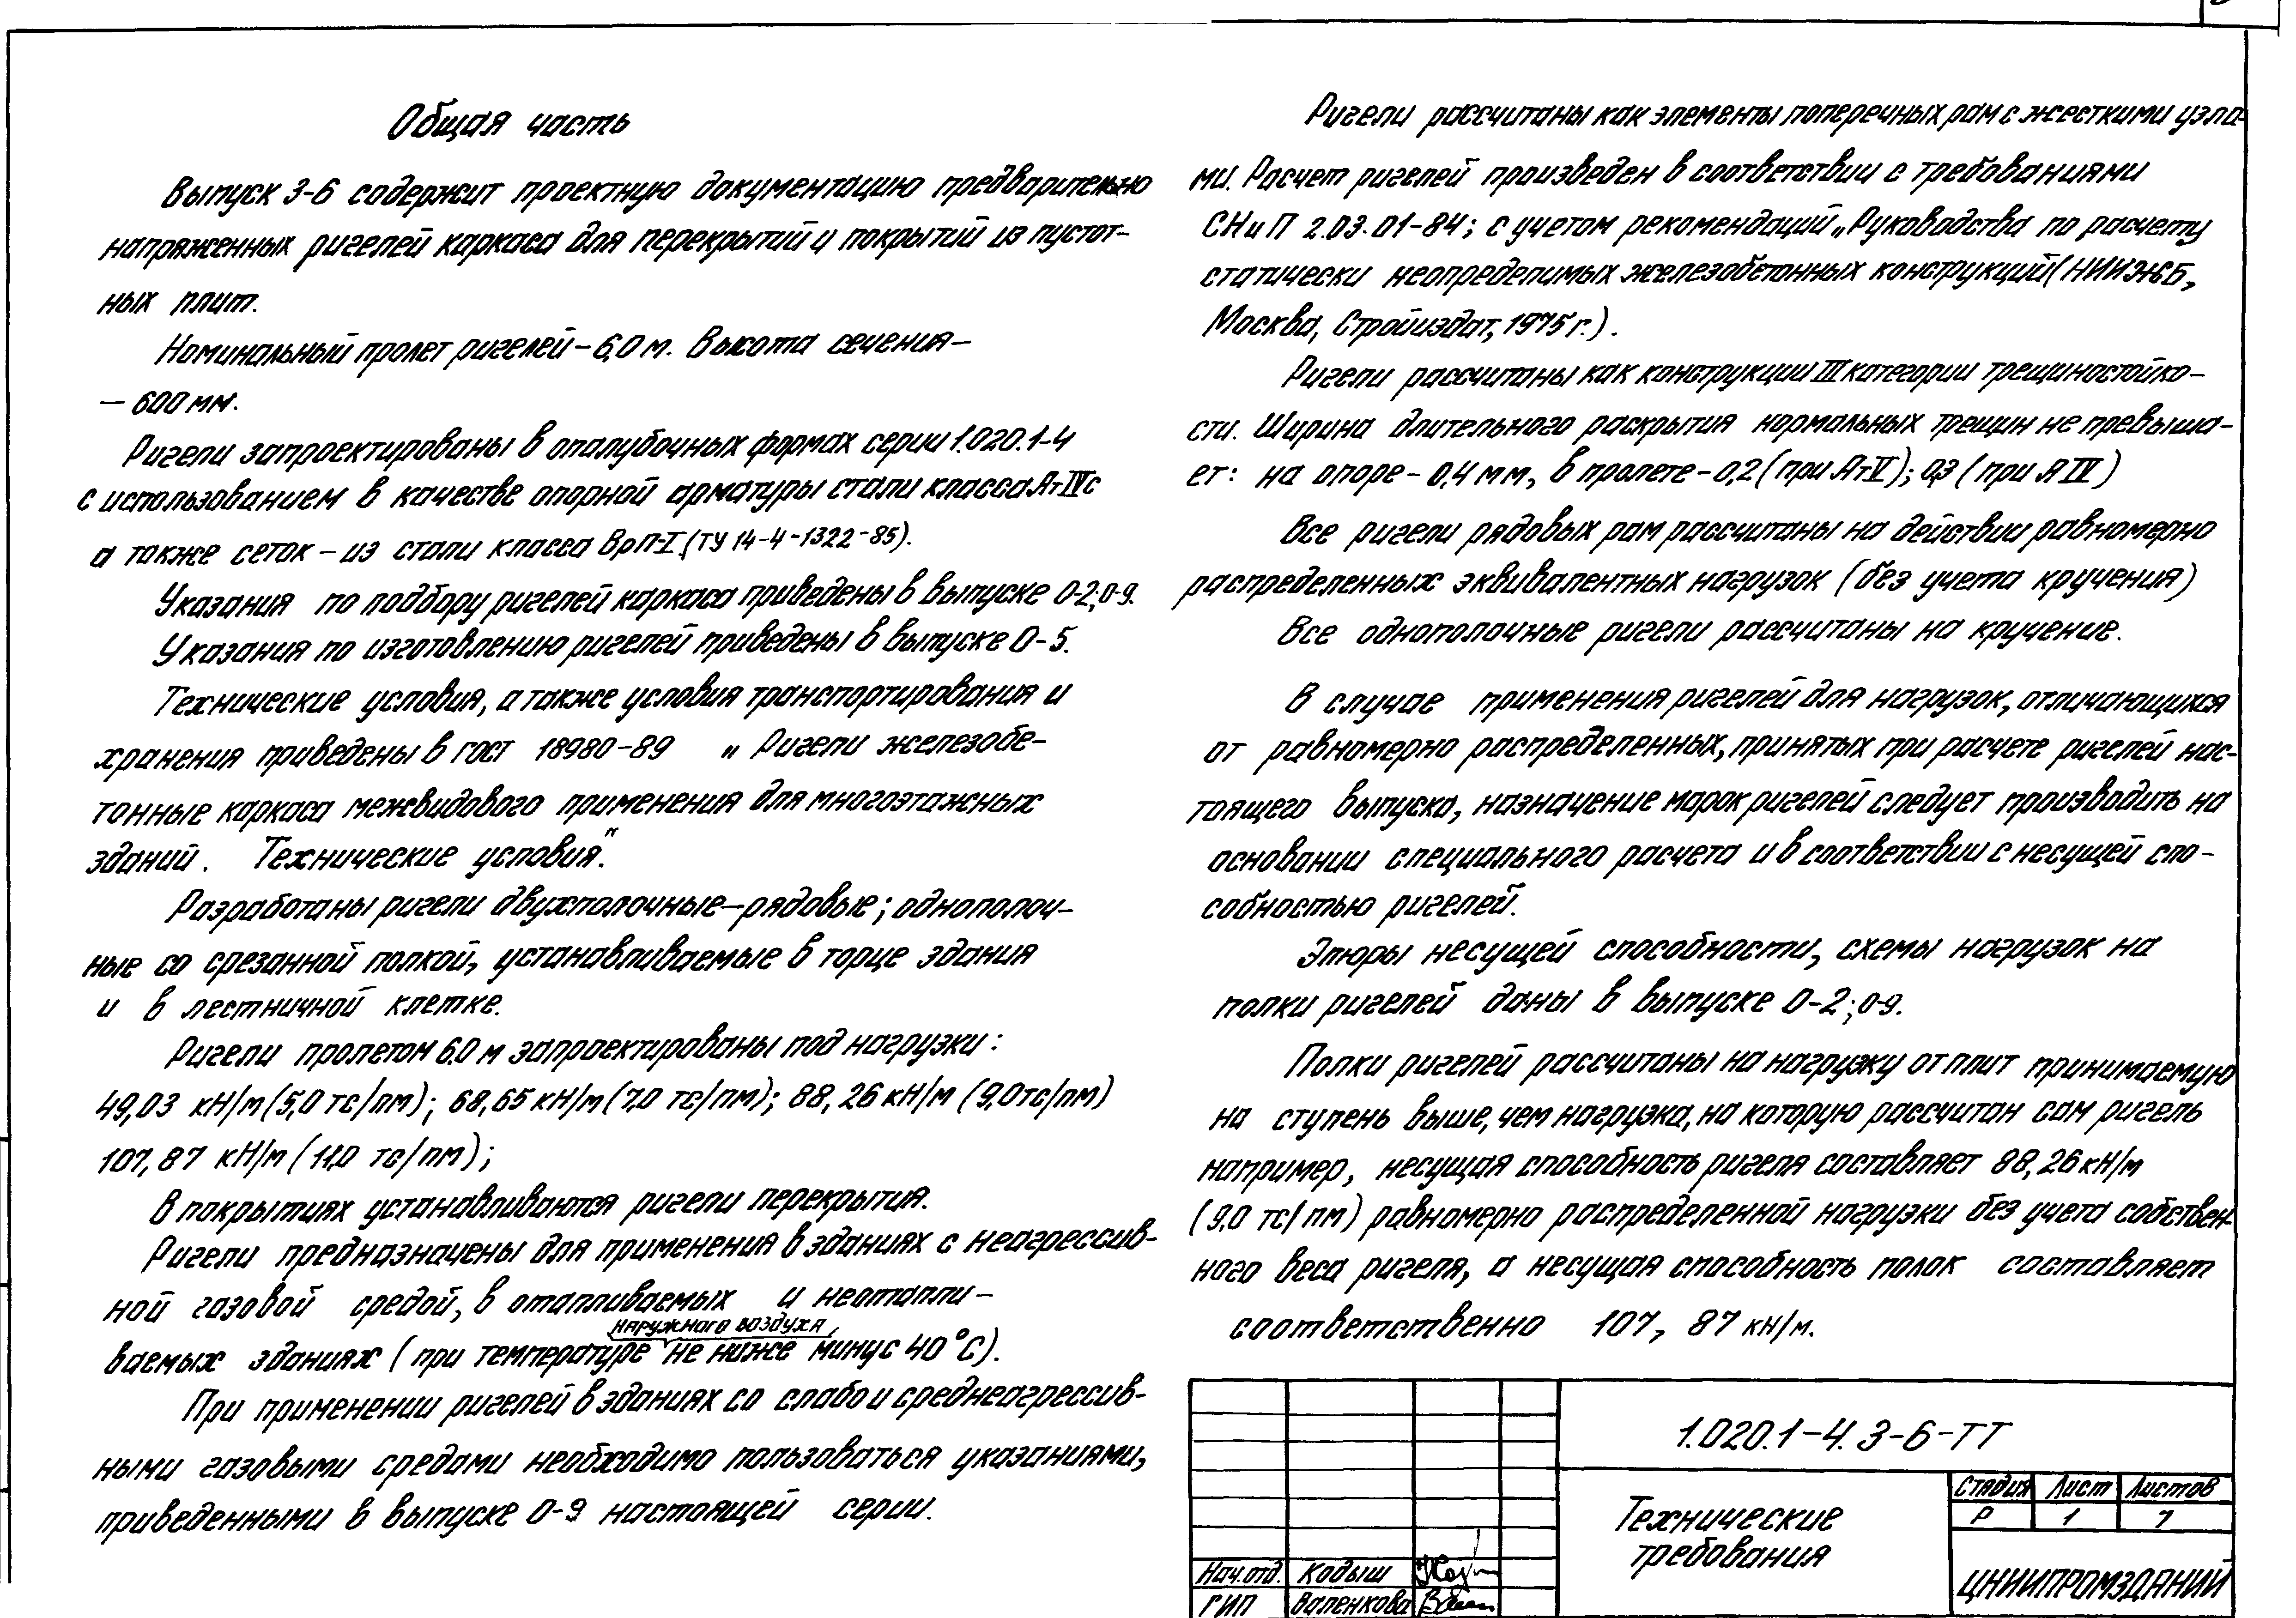 Общая часть
Выпуск 3-6 содержит проектную документацию предварительно
напряженных ригелей каркаса для перекрытий и покрытий из пустот-
ных плит.
Номинальный пролет ригелей – 6,0 м. Высота сечения –
– 600 мм.
Ригели запроектированы в опалубочных формах серии 1.020.1-4
с использованием в качестве опорной арматуры стали класса Ат IVс
а также сеток – из стали класса ВрП-I (ТУ 14-4-1322-85).
Указания по подбору ригелей каркаса приведены в выпуске 0-2; 0-9.
Указания по изготовлению ригелей приведены в выпуске 0-5.
Технические условия, а также условия транспортирования и
хранения приведены в гост 18980-89 „ Ригели железобе-
тонные каркаса межвидового применения для многоэтажных
зданий. Технические условия."
Разработаны ригели двухполочные – рядовые; однополоч-
ные со срезанной полкой, устанавливаемые в торце здания
и в лестничной клетке.
Ригели пролетом 6.0 м запроектированы под нагрузки:
49,03 кН/м (5,0 тс/пм); 68,65 кН/м (7,0 тс/пм); 88,26 кН/м (9,0 тс/пм)
107,87 кН/м (11,0 тс/пм);
В покрытиях устанавливаются ригели перекрытия.
Ригели предназначены для применения в зданиях с неагрессив-
ной газовой средой, в отапливаемых и неотапли-
наружного воздуха
ваемых зданиях (при температуре не ниже минус 40°С).
При применении ригелей в зданиях со слабо и среднеагрессив-
ными газовыми средами необходимо пользоваться указаниями,
приведенными в выпуске 0-9 настоящей серии.
Ригели рассчитаны как элементы поперечных рам с жесткими узла-
ми. Расчет ригелей произведен в соответствии с требованиями
СНиП 2.03.01-84; с учетом рекомендаций „Руководства по расчету
статически неопределимых железобетонных конструкций (НИИЖБ,
Москва, Стройиздат, 1975 г.).
Ригели рассчитаны как конструкции III категории трещиностойко-
сти. Ширина длительного раскрытия нормальных трещин не превыша-
ет: на опоре – 0,4 мм, в пролете – 0,2 (при Ат V); 0,3 (при А IV)
Все ригели рядовых рам рассчитаны на действии равномерно
распределенных эквивалентных нагрузок (без учета кручения)
Все однополочные ригели рассчитаны на кручение.
В случае применения ригелей для нагрузок, отличающихся
от равномерно распределенных, принятых при расчете ригелей нас-
тоящего выпуска, назначение марок ригелей следует производить на
основании специального расчета и в соответствии с несущей спо-
собностью ригелей.
Эпюры несущей способности, схемы нагрузок на
полки ригелей даны в выпуске 0-2; 0-9.
Полки ригелей рассчитаны на нагрузку от плит принимаемую
на ступень выше, чем нагрузка, на которую рассчитан сам ригель
например, несущая способность ригеля составляет 88,26 кН/м
(9,0 тс/пм) равномерно распределенной нагрузки без учета собствен-
ного веса ригеля, а несущая способность полок составляет
соответственно 107, 87 кН/м.
1.020.1-4. 3-6-ТТ
Технические
требования
Стадия Лист Листов
Р 1 7
ЦНИИПРОМЗДАНИЙ
Нач.отд. Кодыш
ГИП Валенкова